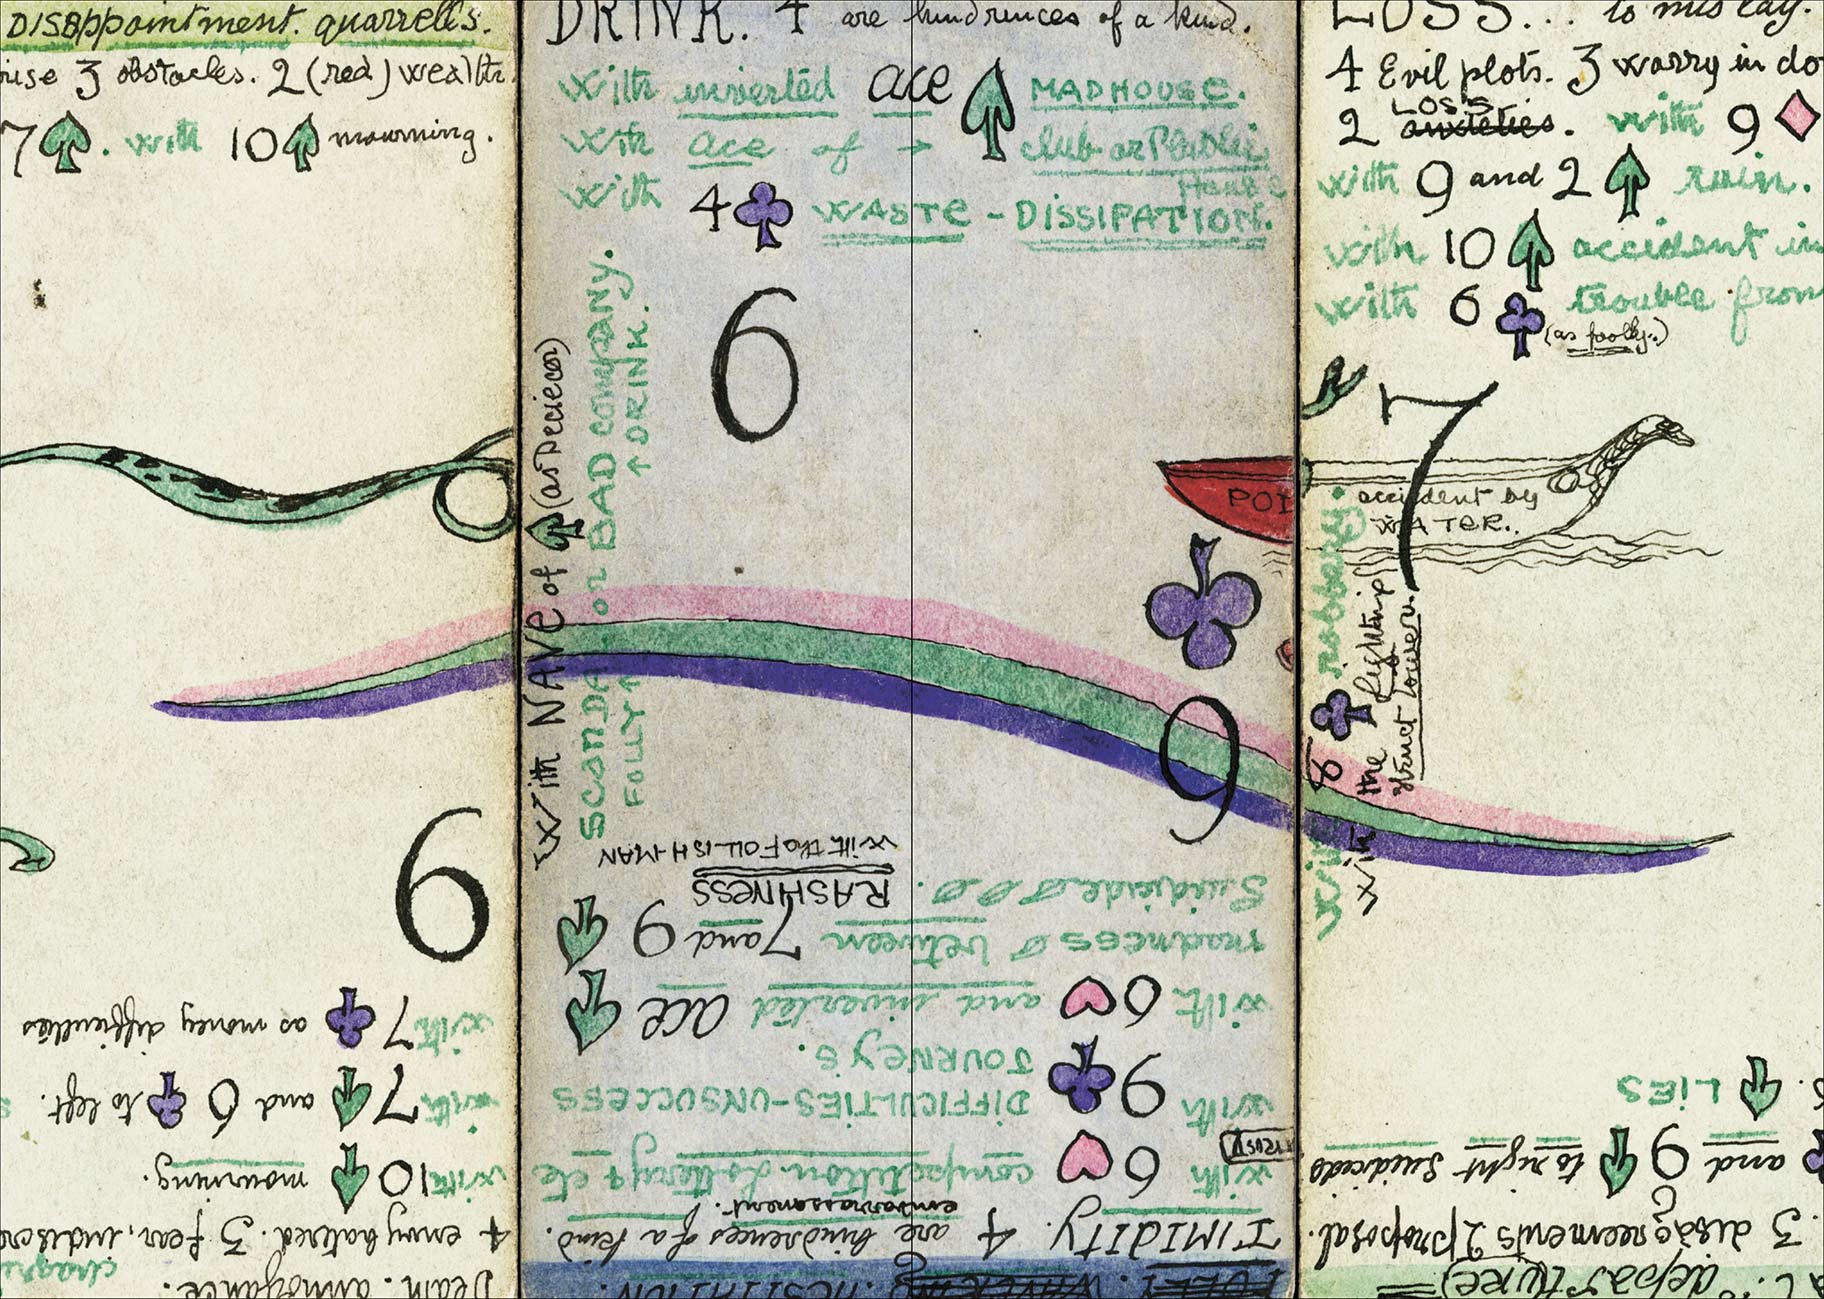 DISAPPOINTMENT. quarrells.
3 obstacles. 2 (red) wealth.
7 ♠. with 10 ♠ mourning.
6
with 7 ♣ as money difficulties
with 7 ♠ and 6 ♣ to left.
with 10 ♠ mourning.
4 envy hatred. 3 fear,
annoyance.
DRINK. 4 are hindrences of a kind.
with inverted ace ♠ MADHOUSE.
with ace of → club or Public House
with 4 ♣ WASTE - DISSIPATION.
6
With NAVE of ♠
SCANDAL or BAD COMPANY.
FOLLY ↑ ↑ DRINK.
POI
♣
9
TIMIDITY. 4 are hindrences of a kind.
embarrassment.
with 6 ♥ competition Lottery + etc
with 9 ♣ DIFFICULTIES-UNSUCCESS
JOURNEYS.
with 6 ♥ and inverted ace ♠
madness between 7 and 9 ♠
Suicide
RASHNESS
with the FOLLISH-MAN
LOSS... to mislay.
4 Evil plots. 3 worry in
LOSS
2 anxieties. with 9 ♦
with 9 and 2 ♠ ruin.
with 10 ♠ accident in
with 6 ♣ trouble from
(as folly.)
7
accident by
WATER.
with 8 ♣ robbery.
with the lighting
struct tower.
♠ LIES
and 9 ♠ to right Suicide.
3 disagreements 2 proposal.
departure)